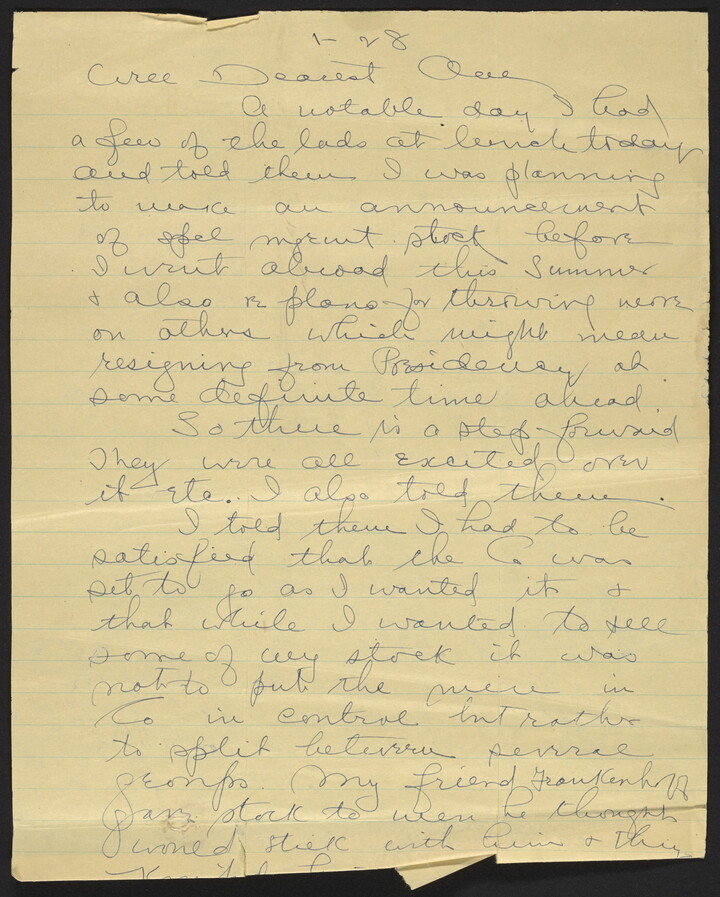 1-28
Dearest One
A notable day I had
a few of the lads at lunch today
and told them I was planning
to make an announcement
of spel mgemt stock before
I went abroad this Summer
& also re plans for throwing more
on others which might mean
resigning from Presidency at
some definite time ahead.
So there is a step forward
They were all excited over
it etc. I also told them.
I told them I had to be
satisfied that the Co was
set to go as I wanted it &
that while I wanted to sell
some of my stock it was
not to put the men in
Co in control but rather
to split between several
groups. My friend Frankenhoff
gave stock to men he thought
would stick with him & they